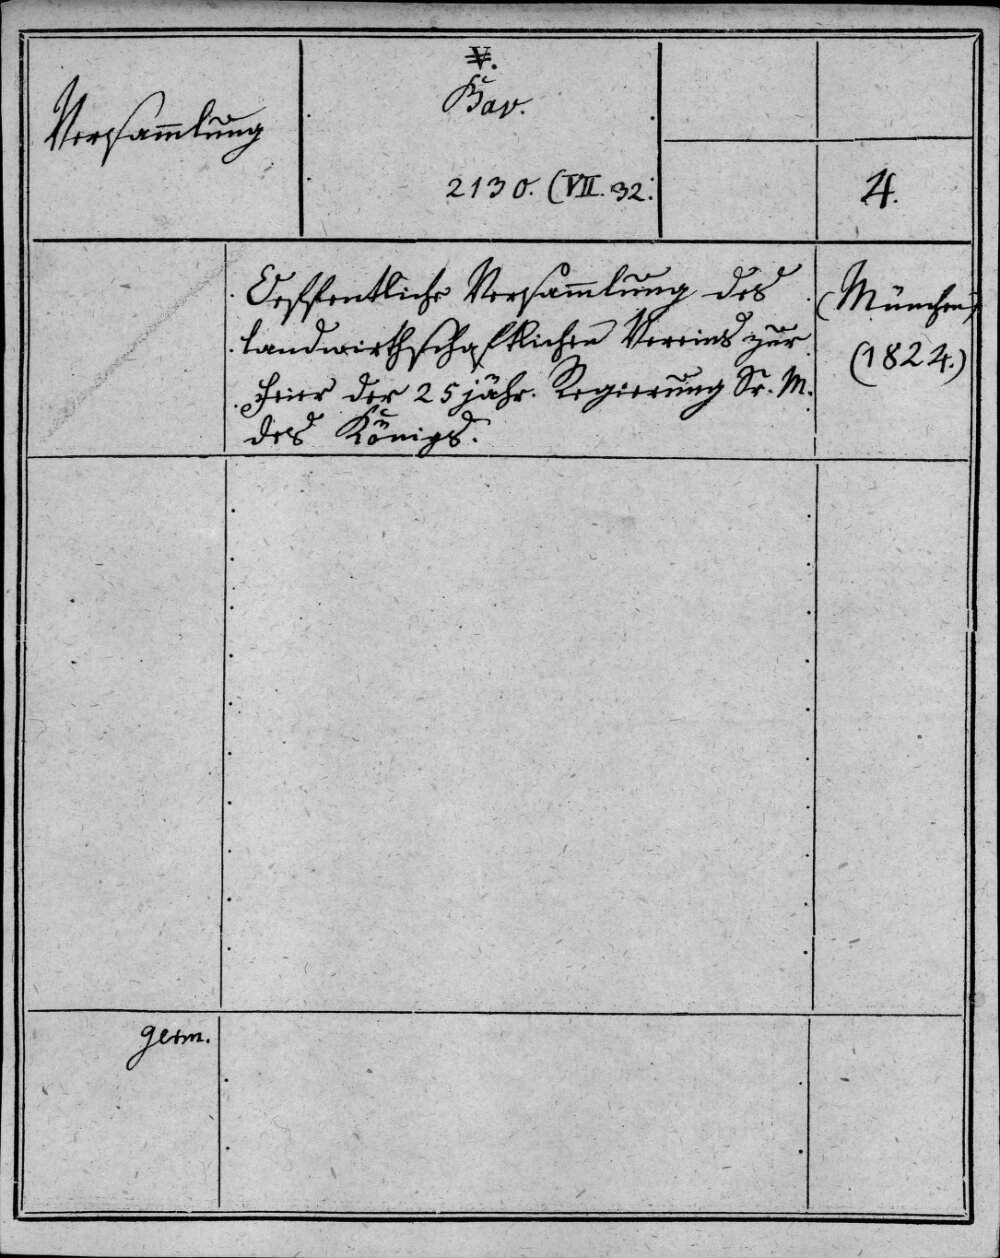 Versam̄lung
V.
Bav.
2130. (VII. 32.
4.
Oeffentliche Versam̄lung des
landwirthschaftlichen Vereins zur
Feier der 25jähr. Regierung Sr. M.
des Königs.
(München)
(1824.)
germ.